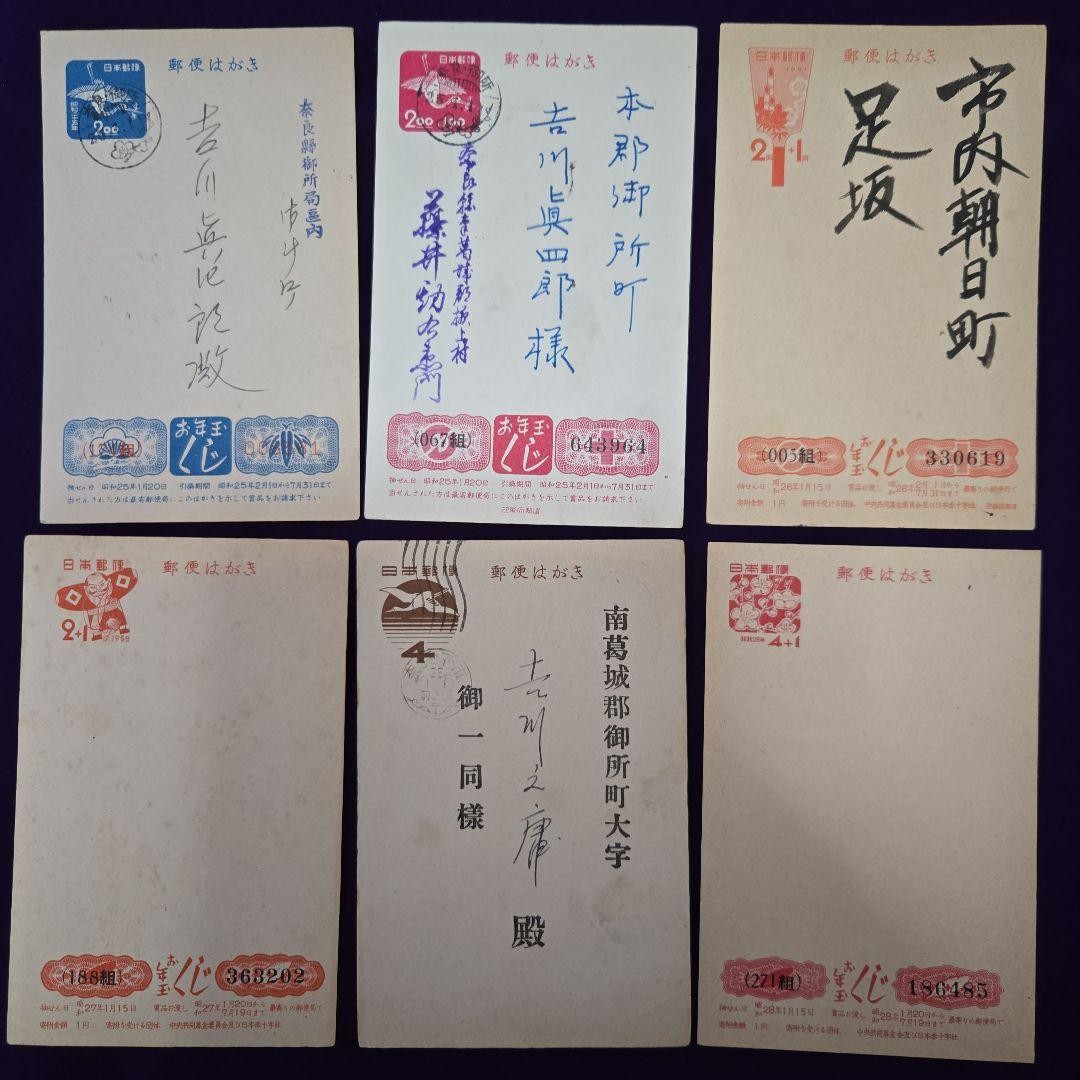 日本郵便
昭和二十五年
2.00
郵便はがき
奈良縣御所局區内
お年玉
くじ
抽せん日 昭和25年1月20日 引換期間 昭和25年2月1日から7月31日まで
当せんされた方は最寄郵便局にこのはがきを示して賞品をお請求下さい
日本郵便
2.00 1.00
郵便はがき
本郡御所町
吉川眞四郎様
藤井
(067組)
お年玉
くじ
643964
抽せん日 昭和25年1月20日 引換期間 昭和25年2月1日から7月31日まで
当せんされた方は最寄郵便局にこのはがきを示して賞品をお請求下さい
日本郵便
1951
2円+1円
郵便はがき
市内朝日町
足坂
(005組)
お年玉
くじ
330619
抽せん日 昭和26年1月15日 賞品お渡し 昭和26年2月1日から7月31日まで 最寄りの郵便局で
寄附金額 1円 寄附を受ける団体 中央共同募金委員会及び日本赤十字社
日本郵便
2+1
1952
郵便はがき
(188組)
お年玉
くじ
363202
抽せん日 昭和27年1月15日 賞品お渡し 昭和27年1月20日から7月19日まで 最寄りの郵便局で
寄附金額 1円 寄附を受ける団体 中央共同募金委員会及び日本赤十字社
日本郵便
4
郵便はがき
南葛城郡御所町大字
吉川
殿
御一同様
日本郵便
昭和28年 4+1
郵便はがき
(271組)
お年玉
くじ
186485
抽せん日 昭和28年1月15日 賞品お渡し 昭和28年1月20日から7月19日まで 最寄りの郵便局で
寄附金額 1円 寄附を受ける団体 中央共同募金会及び日本赤十字社